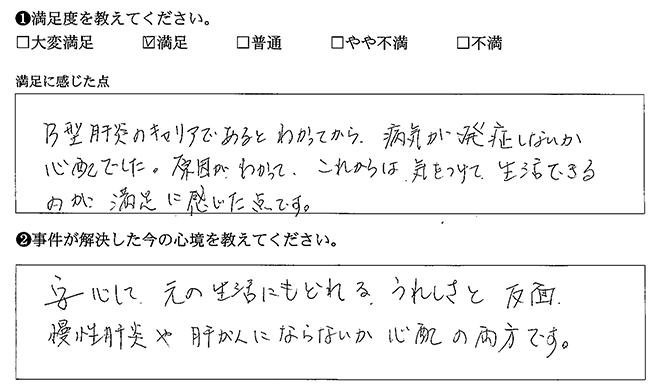 ❶満足度を教えてください。
□大変満足 ☑満足 □普通 □やや不満 □不満
満足に感じた点
B型肝炎のキャリアであるとわかってから、病気が発症しないか
心配でした。原因がわかって、これからは気をつけて生活できる
のが、満足に感じた点です。
❷事件が解決した今の心境を教えてください。
安心して、元の生活にもどれる、うれしさと反面、
慢性肝炎や肝がんにならないか心配の両方です。